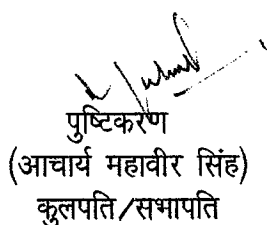 पुष्टिकरण
(आचार्य महावीर सिंह)
कुलपति/सभापति